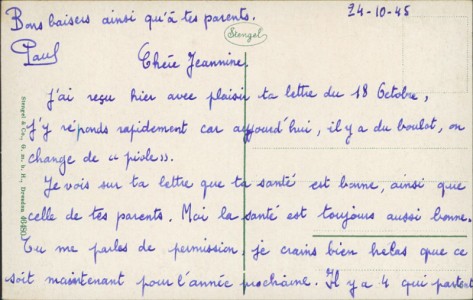 Bons baisers ainsi qu'à tes parents.
24-10-45
Paul
Stengel
Chère Jeannine,
J'ai reçu hier avec plaisir ta lettre du 18 Octobre,
J'y réponds rapidement car aujourd'hui, il y a du boulot, on
change de "piole".
Je vois sur ta lettre que ta santé est bonne, ainsi que
celle de tes parents. Moi la santé est toujours aussi bonne.
Tu me parles de permission, je crains bien hélas que ce
soit maintenant pour l'année prochaine. Il y a 4 qui partent
Stengel & Co., G. m. b. H., Dresden